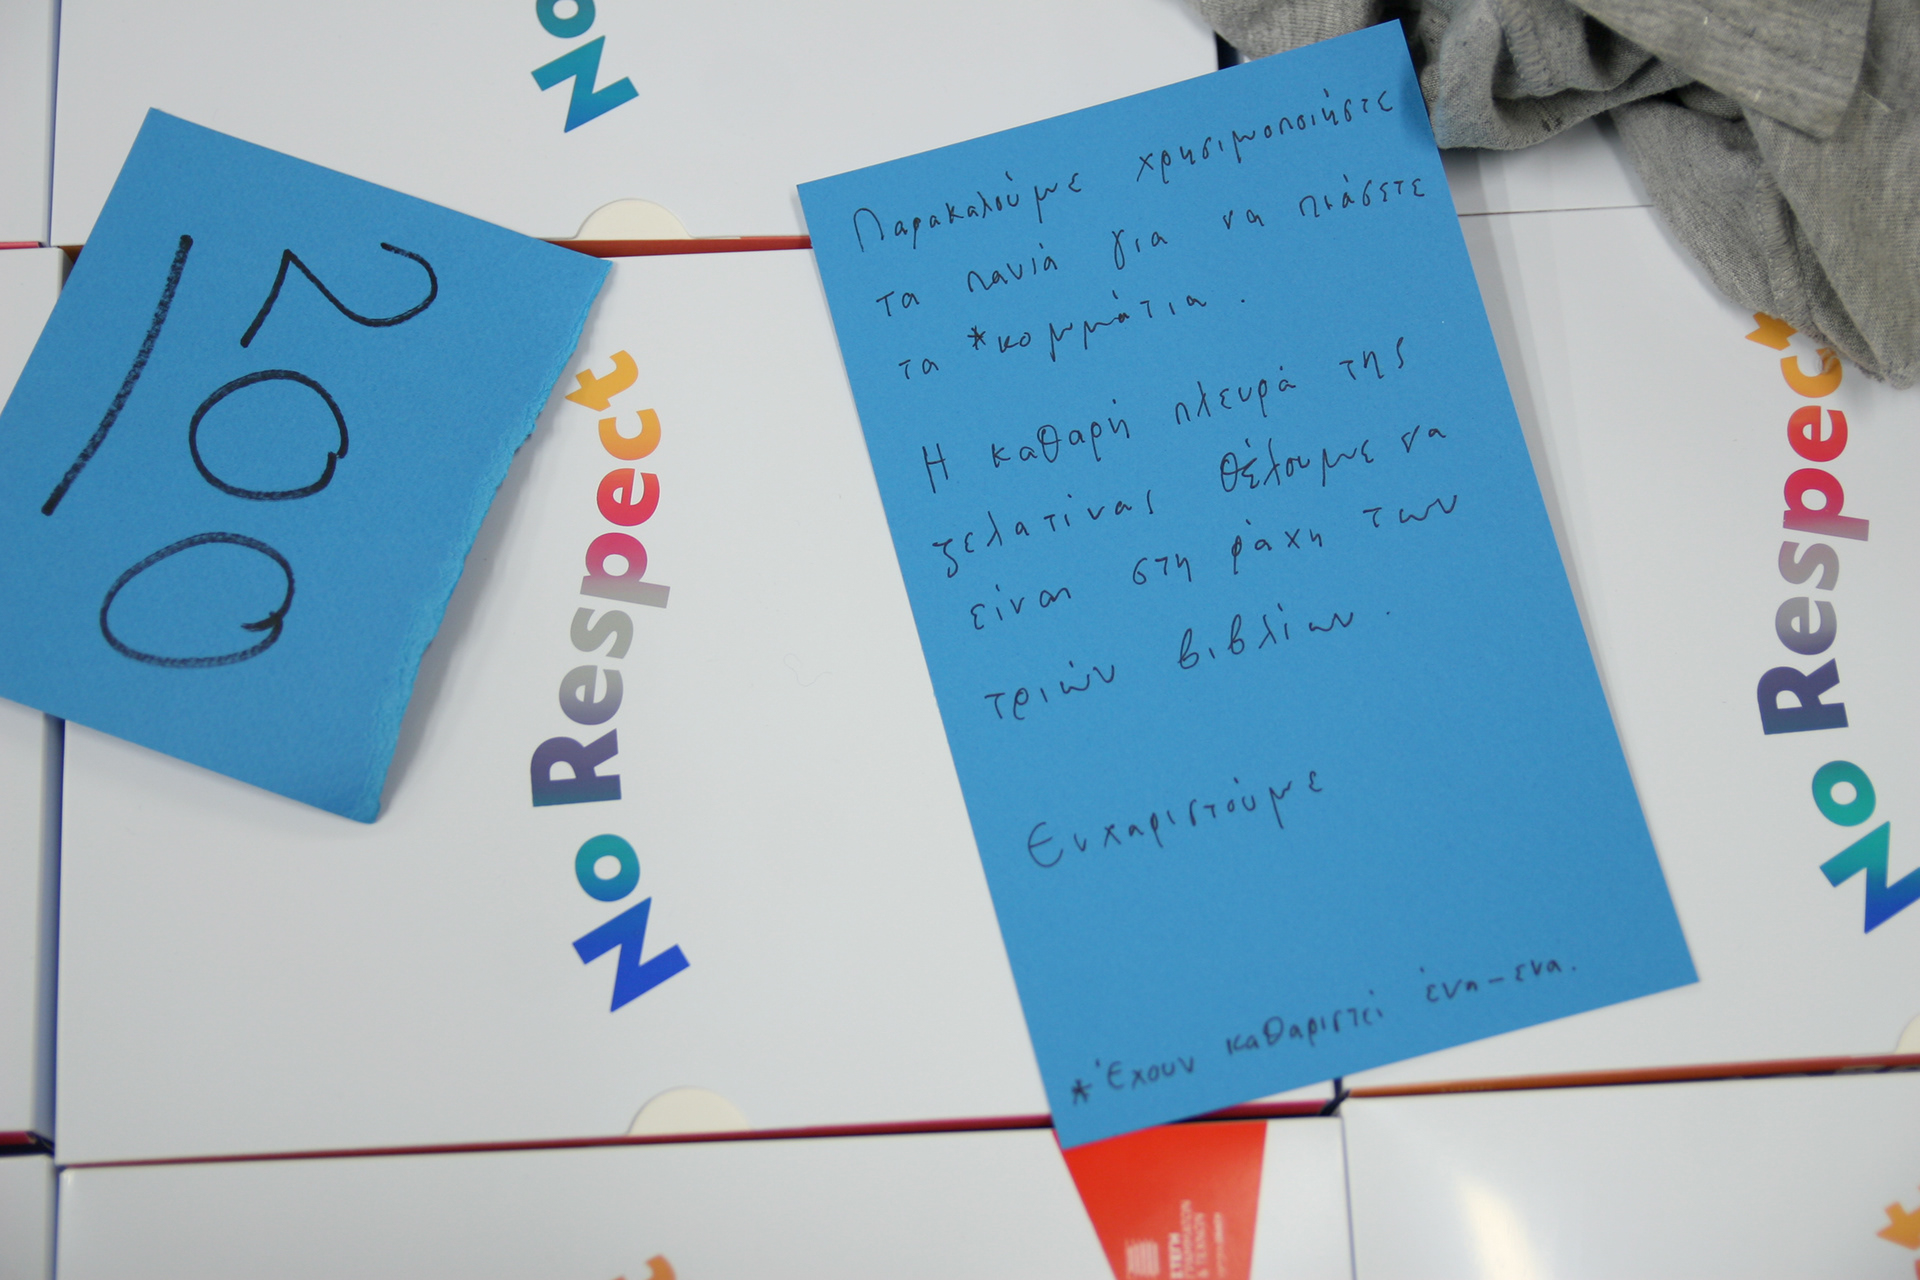 200
Παρακαλούμε χρησιμοποιήστε
τα πανιά για να πιάσετε
τα *κομμάτια.
Η καθαρή πλευρά της
ζελατίνας θέλουμε να
είναι στη ράχη των
τριών βιβλίων.
Ευχαριστούμε
*Έχουν καθαριστεί ένα-ένα.
No Respect
No Respect
No
ΣΤΕΓΗ